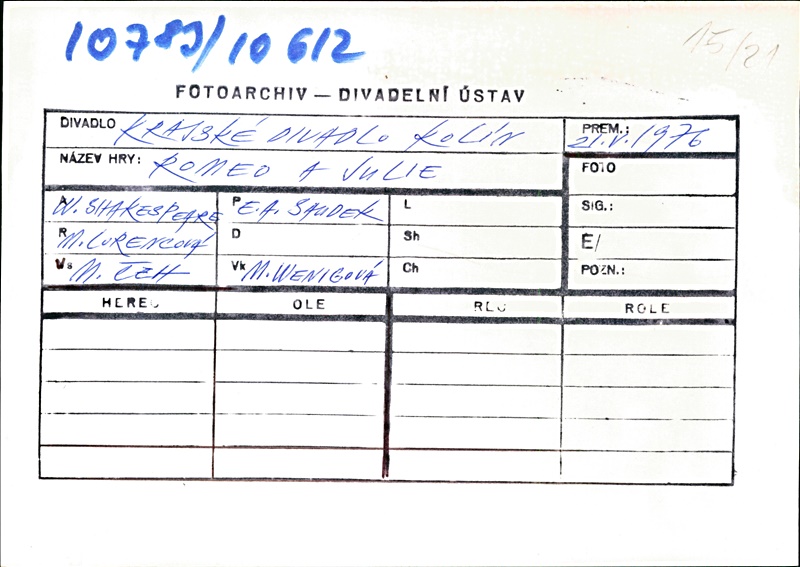 10783/10612
15/21
FOTOARCHIV — DIVADELNÍ ÚSTAV
DIVADLO KRAJSKÉ DIVADLO KOLÍN
PREM.: 21.V.1976
NÁZEV HRY: ROMEO A JULIE
FOTO
A W. SHAKESPEARE P E.A. SAUDEK L
SIG.:
R M. LORENCOVÁ D Sh
E/
Vs M. ČEH Vk M. WENIGOVÁ Ch
POZN.:
HEREC OLE ROLE